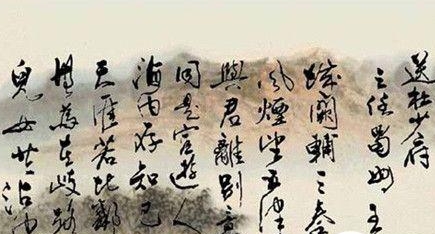 送杜少府
之任蜀州 王
城闕輔三秦
風煙望五津
與君離別意
同是宦遊人
海内存知己
天涯若比鄰
無為在岐路
兒女共沾巾